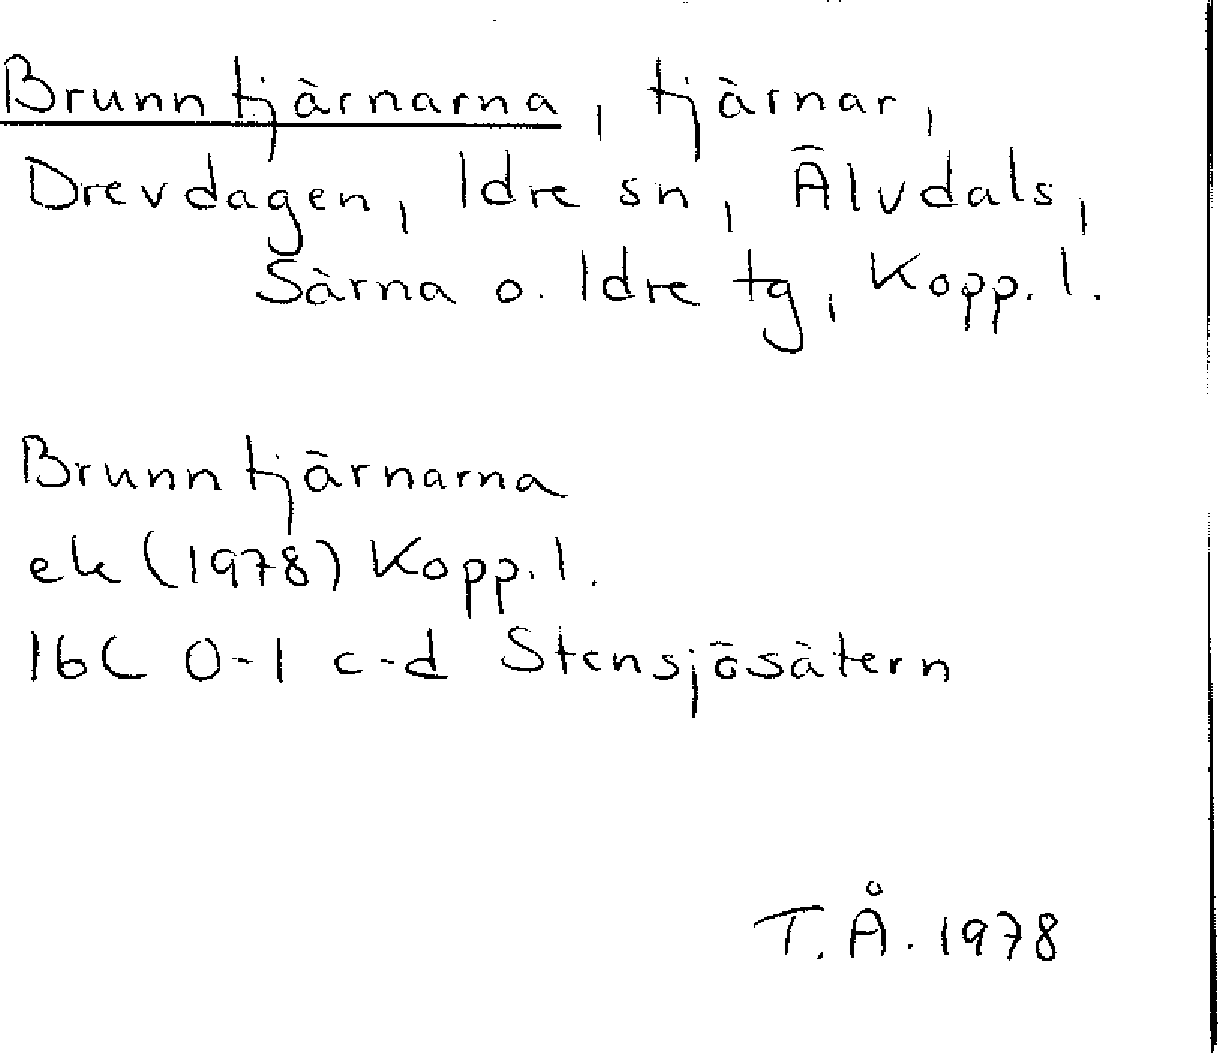 Brunntjärnarna, tjärnar,
Drevdagen, Idre sn, Älvdals,
Särna o. Idre tg, Kopp. l.
Brunntjärnarna
ek (1978) Kopp. l.
16C 0-1 c-d Stensjösätern
T. Å. 1978